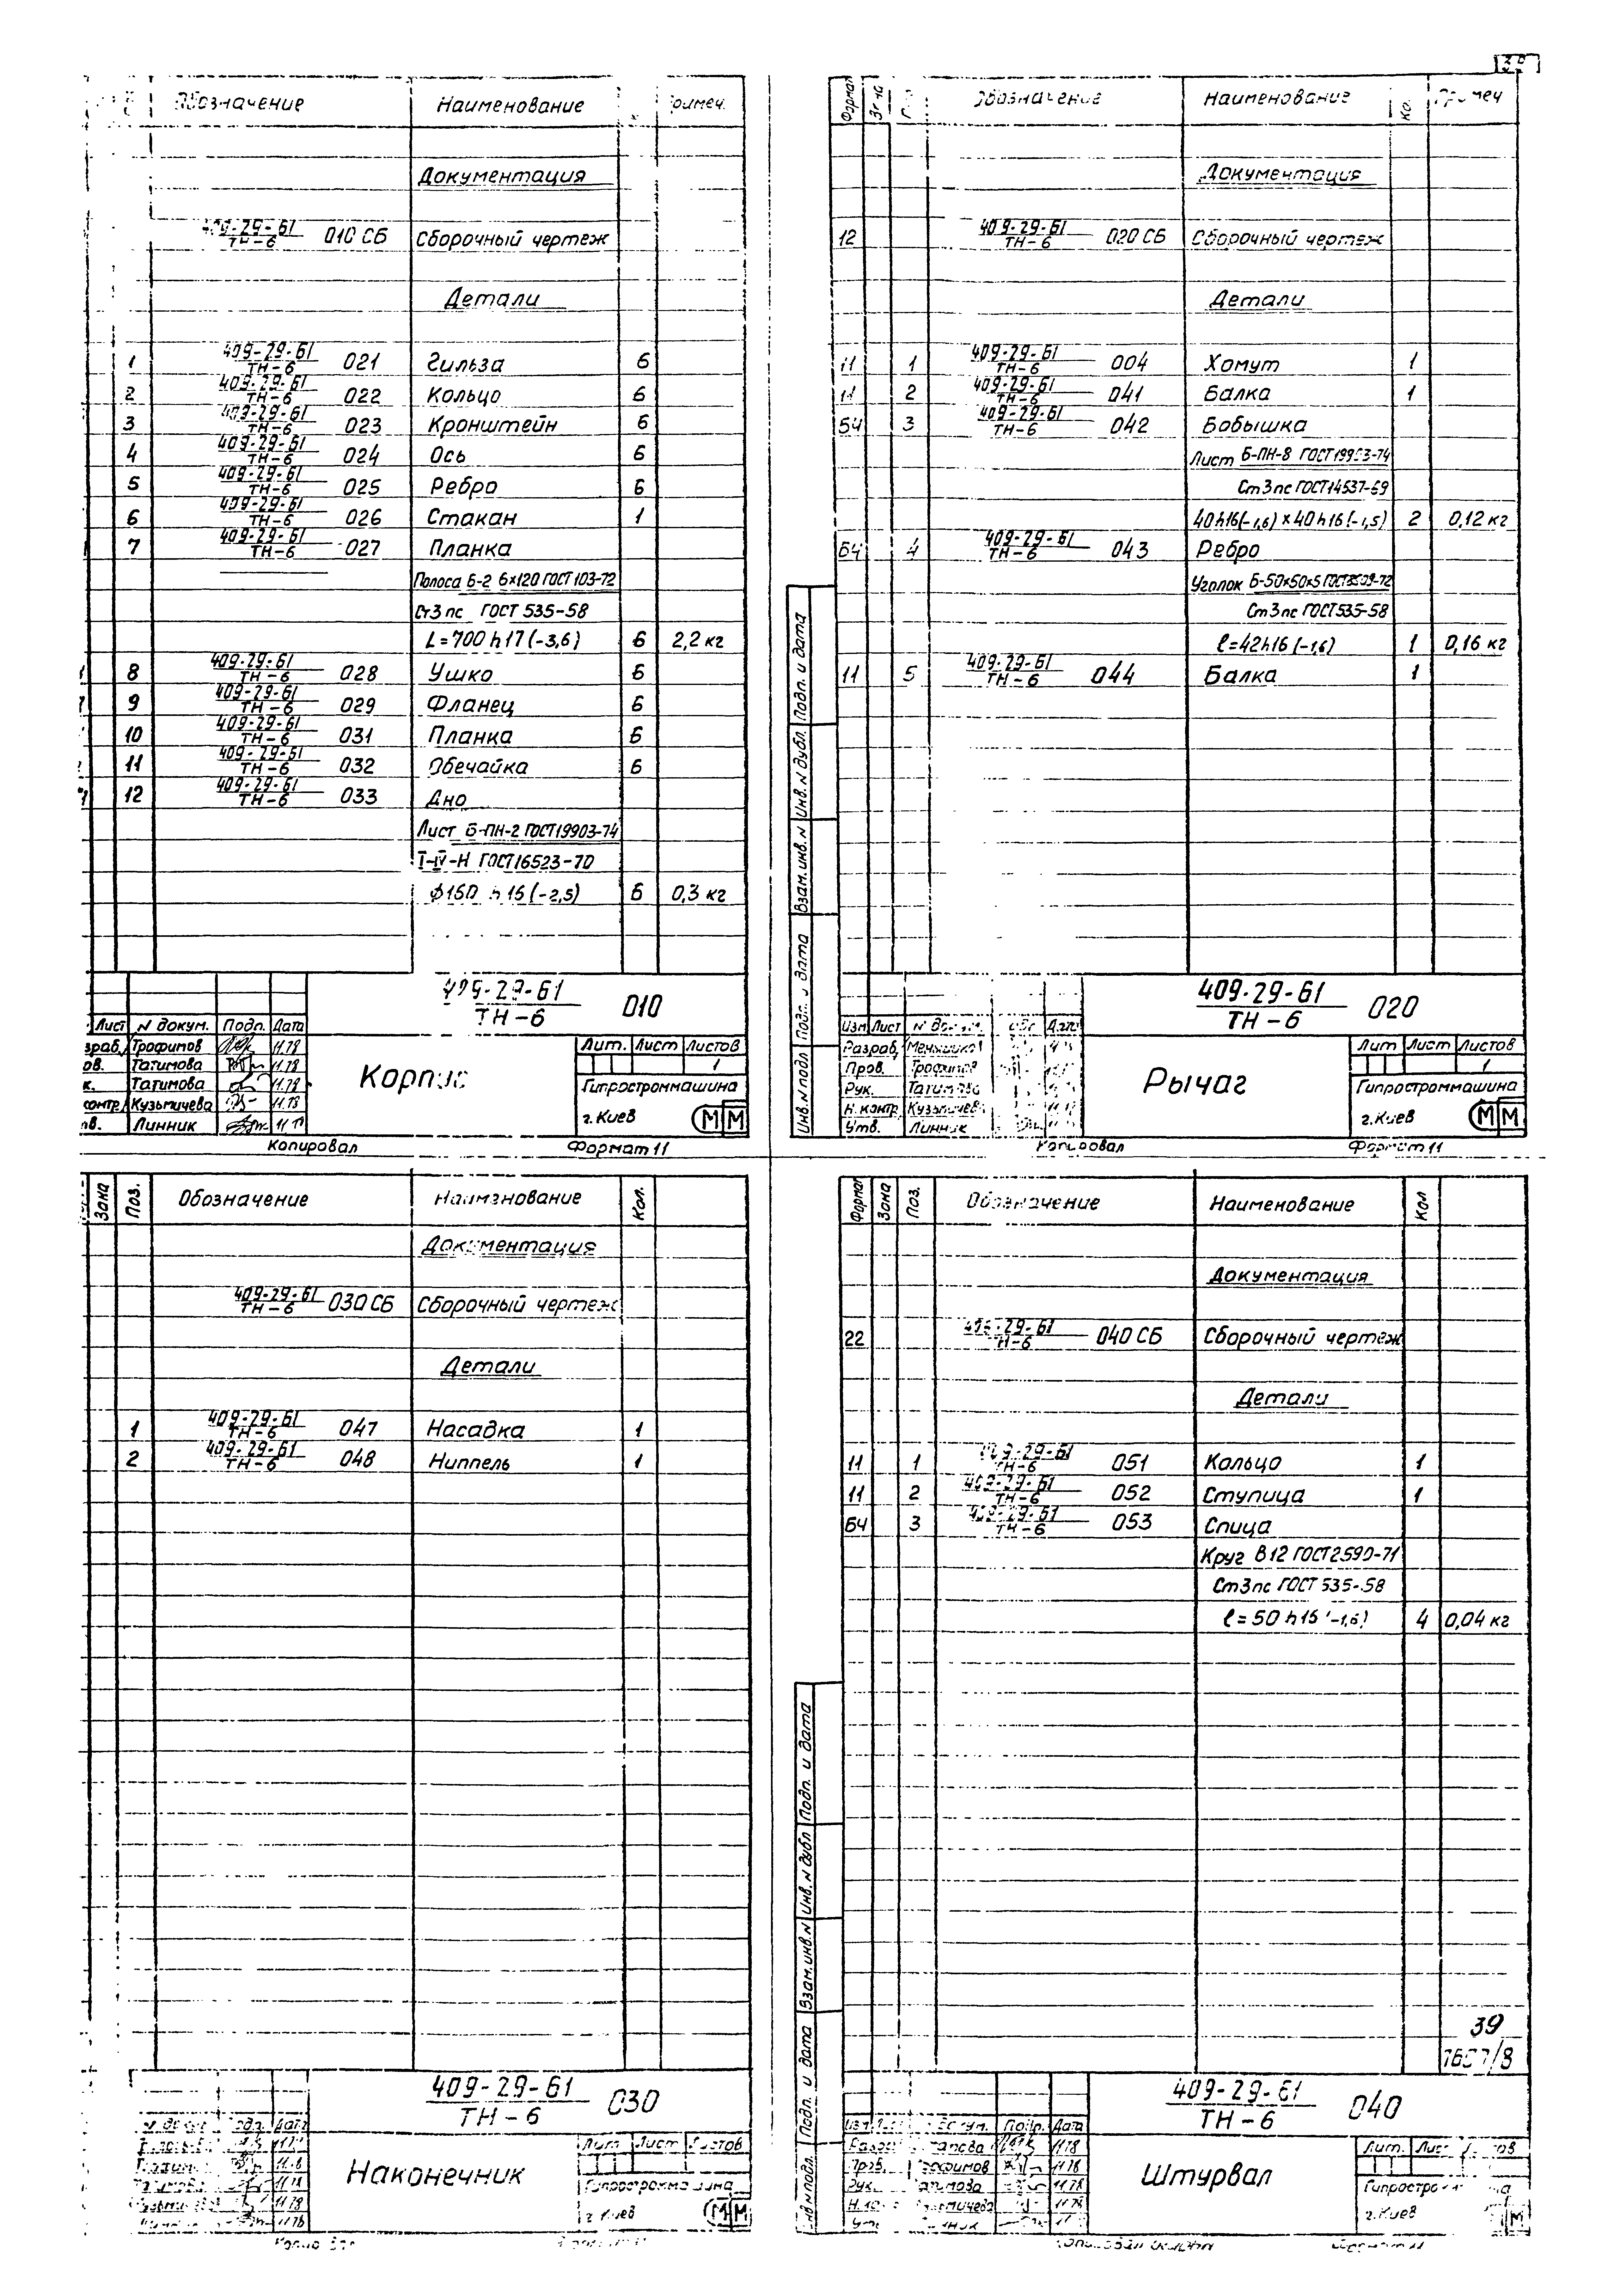 39
Обозначение Наименование
Документация
409-29-61/ТН-6 010 СБ Сборочный чертеж
Детали
1 409-29-61/ТН-6 021 Гильза 6
2 409-29-61/ТН-6 022 Кольцо 6
3 409-29-61/ТН-6 023 Кронштейн 6
4 409-29-61/ТН-6 024 Ось 6
5 409-29-61/ТН-6 025 Ребро 6
6 409-29-61/ТН-6 026 Стакан 1
7 409-29-61/ТН-6 027 Планка
Полоса Б-2 6×120 ГОСТ 103-72
Ст3пс ГОСТ 535-58
L=700 h17 (-3,6) 6 2,2 кг
8 409-29-61/ТН-6 028 Ушко 6
9 409-29-61/ТН-6 029 Фланец 6
10 409-29-61/ТН-6 031 Планка 6
11 409-29-61/ТН-6 032 Обечайка 6
12 409-29-61/ТН-6 033 Дно
Лист Б-ПН-2 ГОСТ19903-74
I-IV-Н ГОСТ16523-70
ф160 h16 (-2,5) 6 0,3 кг
409-29-61/ТН-6 010
Лист N докум. Подп. Дата
Трофимов 11.78
Татимова 11.78
Татимова 11.78
Кузьмичева 11.78
Линник
Корпус
Лит. Лист Листов
1
Гипростроммашина
г.Киев ММ
Копировал Формат 11
Формат Обозначение Наименование
Документация
12 409-29-61/ТН-6 020 СБ Сборочный чертеж
Детали
11 1 409-29-61/ТН-6 004 Хомут 1
11 2 409-29-61/ТН-6 041 Балка 1
БЧ 3 409-29-61/ТН-6 042 Бобышка
Лист Б-ПН-8 ГОСТ19903-74
Ст3пс ГОСТ14637-69
40h16(-1,6)×40h16(-1,6) 2 0,12 кг
БЧ 4 409-29-61/ТН-6 043 Ребро
Уголок Б-50×50×5 ГОСТ8509-72
Ст3пс ГОСТ535-58
ℓ=42h16 (-1,6) 1 0,16 кг
11 5 409-29-61/ТН-6 044 Балка 1
Инв.N подл Подп. и дата Взам.инв.N Инв.N дубл. Подп. и дата
409-29-61/ТН-6 020
Изм Лист
Разраб.
Пров. Трофимов
Рук. Татимова
Н.контр. Кузьмичева
Утв. Линник
Рычаг
Лит Лист Листов
1
Гипростроммашина
г.Киев ММ
Копировал Формат 11
Зона Поз. Обозначение Наименование Кол.
Документация
409-29-61/ТН-6 030 СБ Сборочный чертеж
Детали
1 409-29-61/ТН-6 047 Насадка 1
2 409-29-61/ТН-6 048 Ниппель 1
409-29-61/ТН-6 030
Наконечник
Лит. Лист Листов
Гипростроммашина
г.Киев ММ
Формат Зона Поз. Обозначение Наименование Кол
Документация
22 409-29-61/ТН-6 040 СБ Сборочный чертеж
Детали
11 1 409-29-61/ТН-6 051 Кольцо 1
11 2 409-29-61/ТН-6 052 Ступица 1
БЧ 3 409-29-61/ТН-6 053 Спица
Круг В12 ГОСТ2590-71
Ст3пс ГОСТ 535-58
ℓ=50 h16 (-1,6) 4 0,04 кг
Инв N подл. Подп. и дата Взам.инв.N Инв.N дубл Подп. и дата
39
409-29-61/ТН-6 040
Подп. Дата
11.78
Пров. Трофимов 11.78
Рук. Татимова 11.78
Штурвал
Лит. Лист
г.Киев